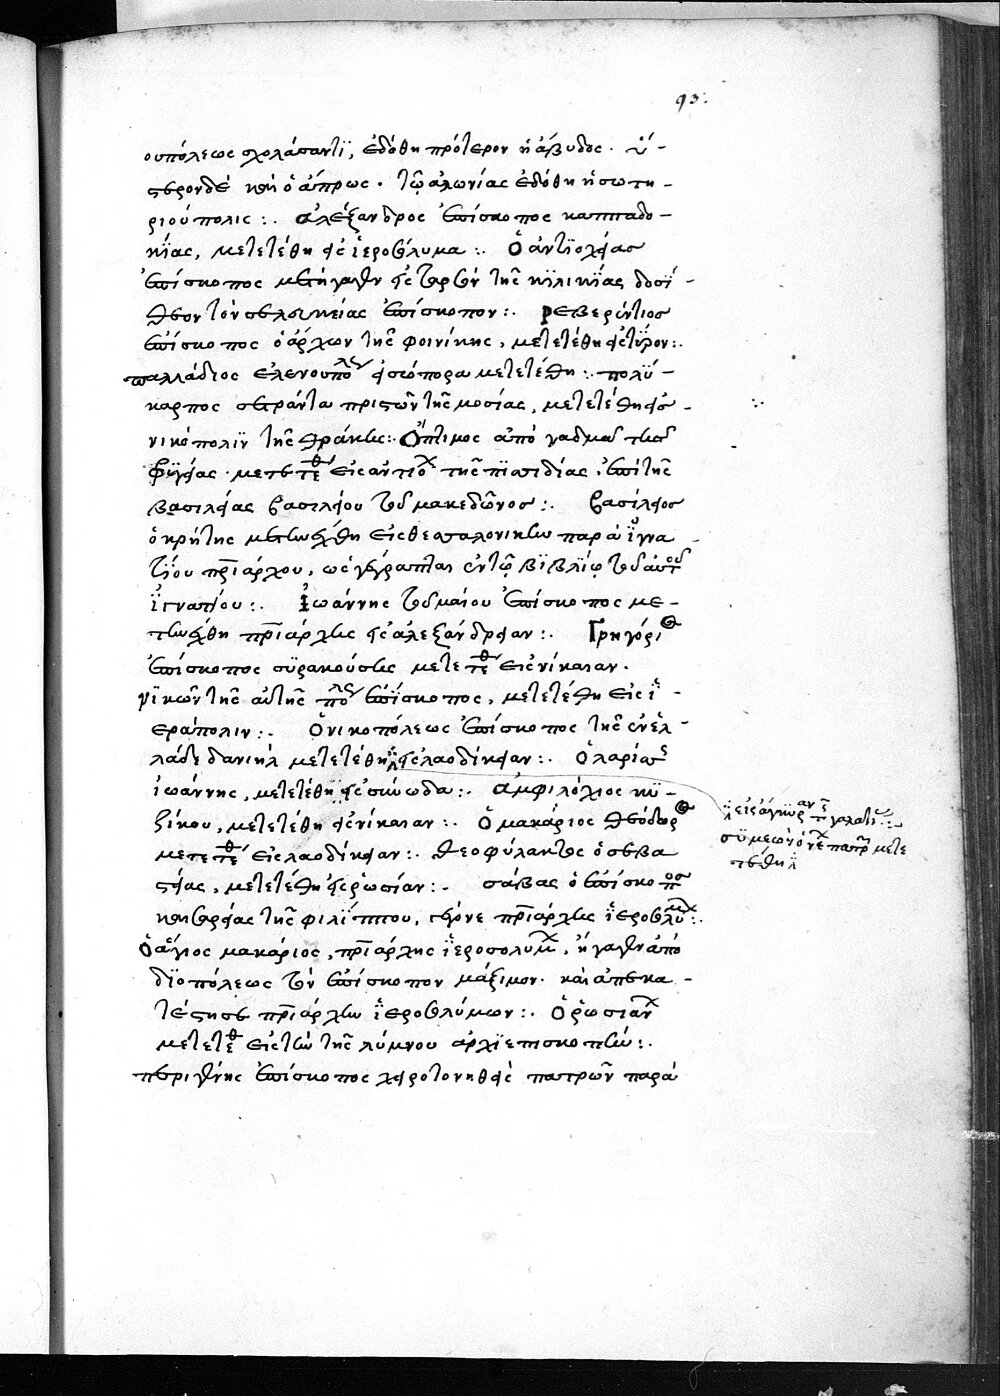 93.
ουπόλεως σχολάσαντϊ, ἐδόθη πρότερον ἡ ἄβυδος. ὕ-
στερον δὲ καὶ ὁ ἄπρως. τῷ ἀλωνίας ἐδόθη ἡ σωτη-
ριούπολις :. ἀλέξανδρος ἐπίσκοπος καππαδο-
κΐας, μετετέθη εἰς ἱεροσόλυμα :. ὁ ἀντϊοχείας
ἐπίσκοπος μετήγαγεν εἰς ταρσὸν τῆς κϊλικΐας δοσί-
θεον τὸν σελευκείας ἐπίσκοπον :. ρεβερέντιος
ἐπίσκοπος ὁ ἄρχων τῆς φοινίκης, μετετέθη εἰς τύρον :.
παλλάδιος ἐλενουπόλεως εἰς ἄσπορα μετετέθη :. πολΰ-
καρπος σεξάντα πρίστων τῆς μοσίας, μετετέθη εἰς
νικόπολϊν τῆς θράκης :. ὄπτιμος ἀπὸ γαδμαὶ τῆς
φρϋγίας. μετετέθη εἰς ἀντιοχ τῆς πϊσιδίας, ἐπὶ τῆς
βασιλείας βασιλείου τοῦ μακεδῶνος :. βασίλειος
ὁ κρήτης μετηνέχθη εἰς θεσσαλονίκην παρὰ ἰγνα
τΐου πριάρχου, ὡς γέγραπται ἐν τῷ βϊβλΐῳ τοῦ αὐτοῦ
ἰγνατίου :. ἰωάννης τοῦ μαίου ἐπίσκοπος με-
τηνέχθη πριάρχης εἰς ἀλεξάνδρειαν :. Γρηγόριος
ἐπίσκοπος σϋρακούσης μετετέθη εἰς νίκαιαν.
νϊκῶν τῆς αὐτῆς πόλεως ἐπίσκοπος, μετετέθη εἰς ἱ-
εράπολιν :. ὁ νικοπόλεως ἐπίσκοπος τῆς ἐν ἑλ-
λάδι δανιὴλ μετετέθη εἰς λαοδίκειαν :. ὁ λαρίσης
ἰωάννης, μετετέθη εἰς σύνωδα :. ἀμφιλόχιος κϋ-
ζίκου, μετετέθη εἰς νίκαιαν :. ὁ μακάριος θεόδωρος
μετετέθη εἰς λαοδίκειαν :. θεοφύλακτος ὁ σεβα
στείας, μετετέθη εἰς ῥωσίαν :. σάβας ὁ ἐπίσκοπος
καισαρείας τῆς φιλΐππου, γέγονε πριάρχης ἱεροσολύμων :.
ὁ ἅγιος μακάριος, πριάρχης ἱεροσολύμων, ἤγαγεν ἀπὸ
δϊοπόλεως τὸν ἐπίσκοπον μάξιμον. καὶ ἀπεκα-
τέστησε πριάρχην ἱεροσολύμων :. ὁ ῥωσίαν
μετετέθη εἰς τὴν τῆς λύμνου ἀρχϊεπισκοπήν :.
περιγένης ἐπίσκοπος χειροτονηθεὶς πατρῶν παρὰ
εἰς ἄγκυραν τῆς γαλατίας :.
σϋμεὼν ὁ νέπατρ μετε
τέθη